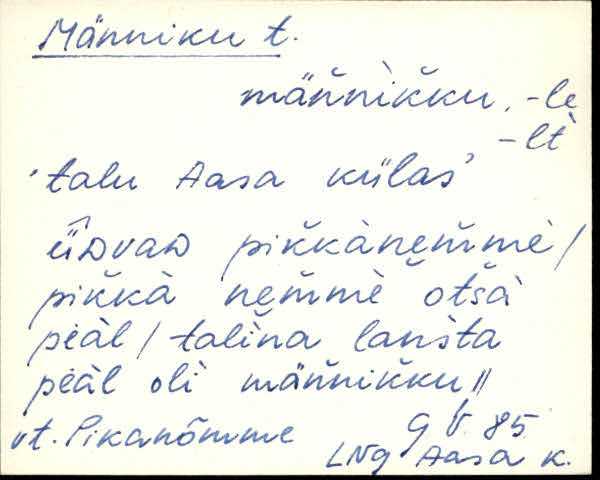 Männiku t.
männ̆ìk̆ku, -le
-lt̀
'talu Aasa külas'
ü̂ᴅvaᴅ pik̆kànem̆mè /
pik̆kà nem̆mè ŏt̆sà
pèäl / talĭna lan̆sta
pèäl olì männ̆ik̆ku ||
vt. Pikanõmme
LNg Aasa k.